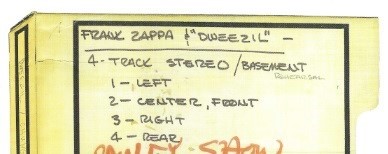 FRANK ZAPPA & "DWEEZIL" –
4-TRACK STEREO/BASEMENT
REHEARSAL
1 – LEFT
2 – CENTER, FRONT
3 – RIGHT
4 – REAR